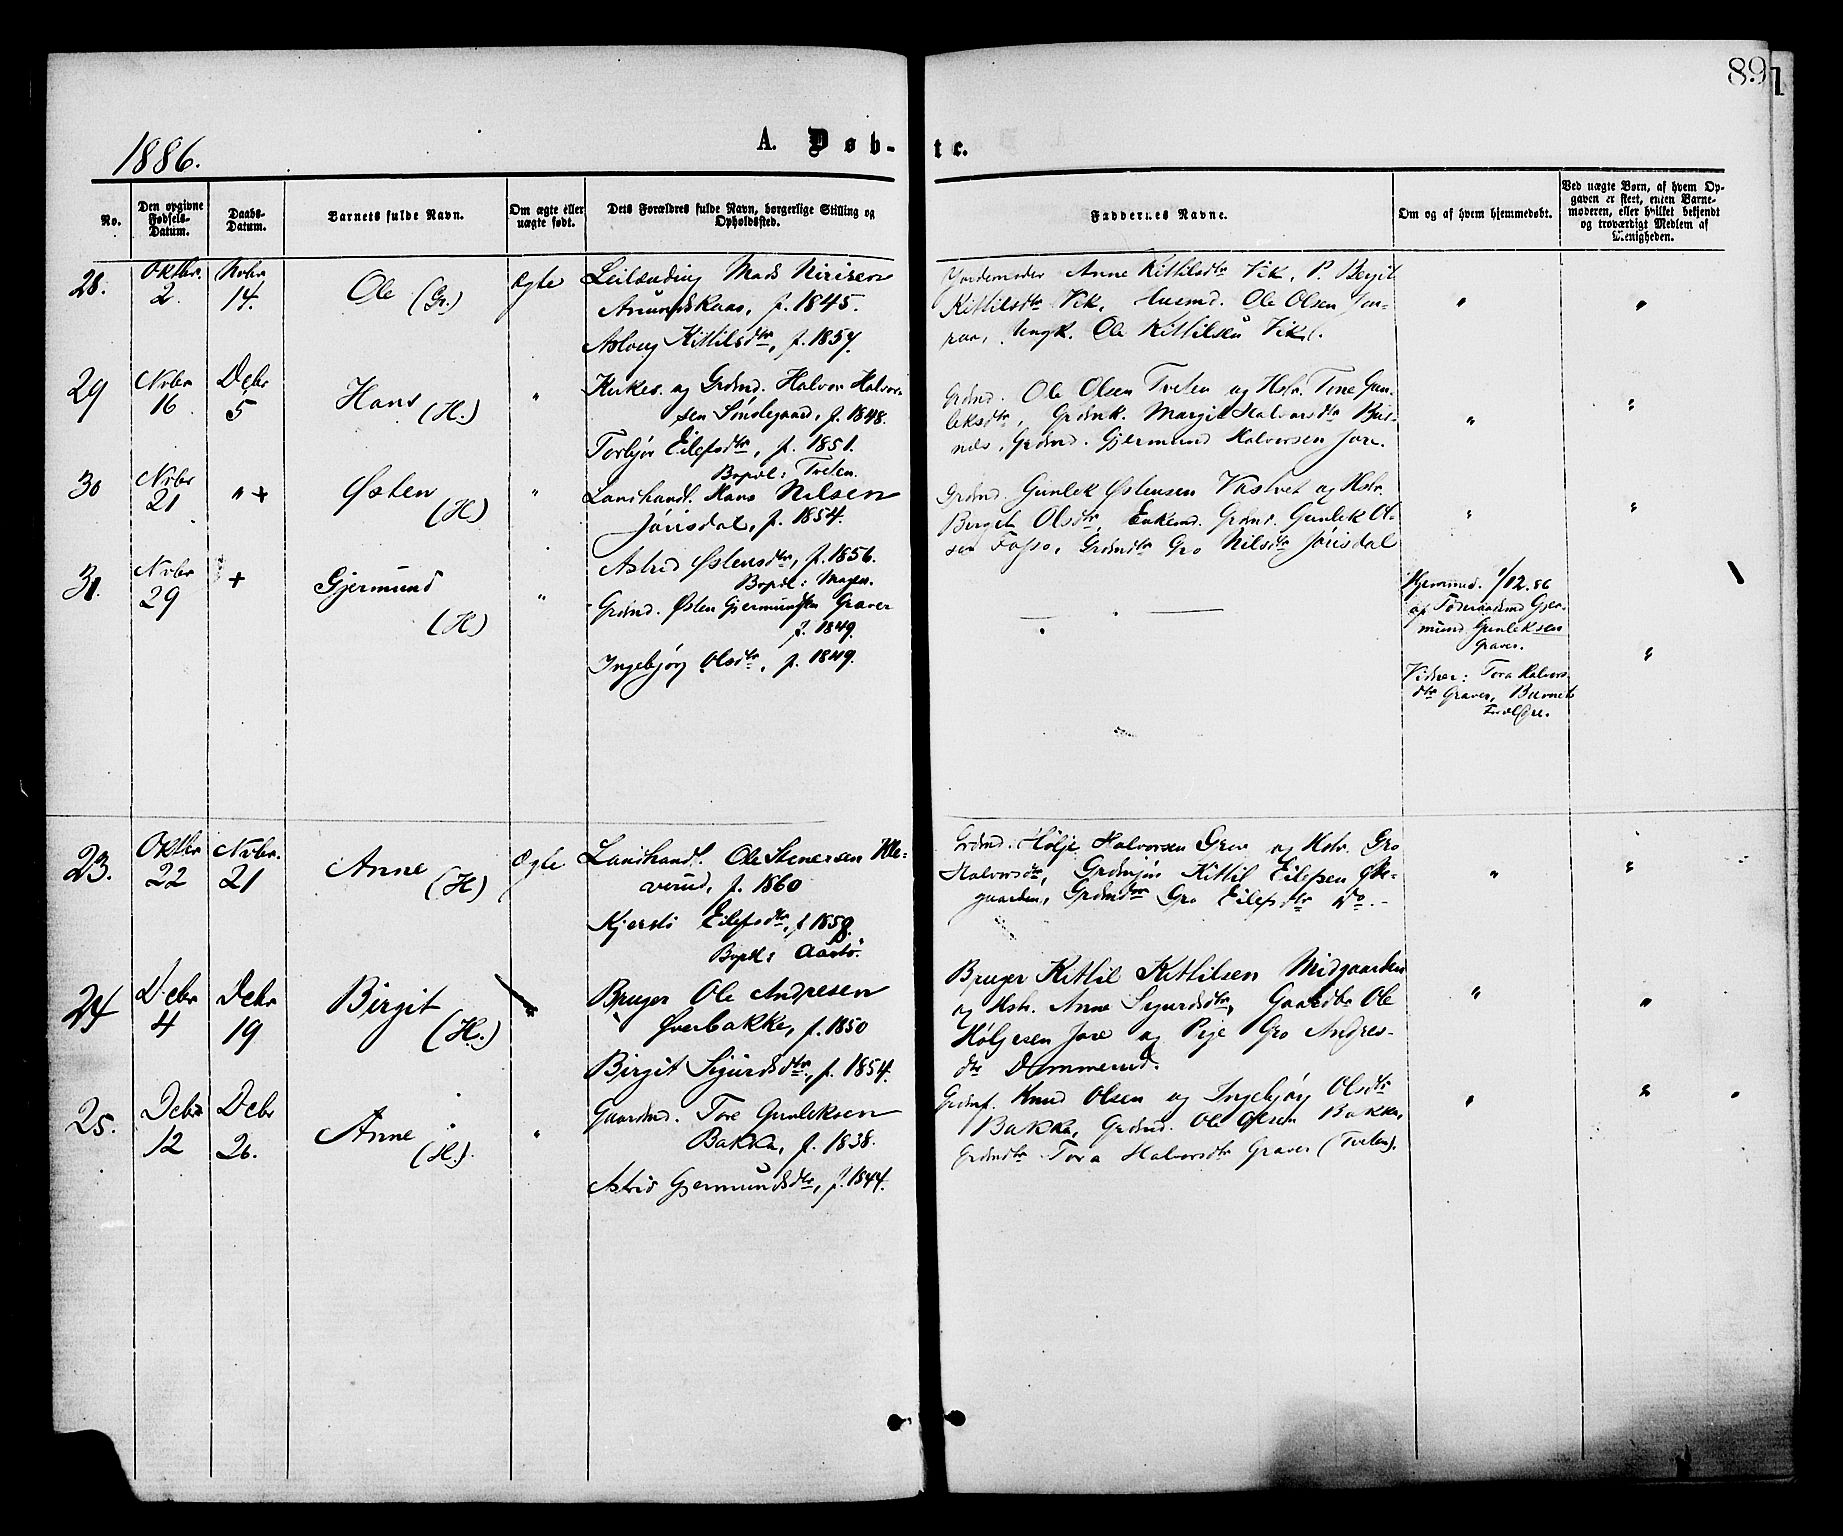 89
1886.
A. Døb-
te.
No.
Den opgivne Fødsels-Datum.
Daabs-Datum.
Barnets fulde Navn.
Om ægte eller uægte født.
Dets Forældres fulde Navn, borgerlige Stilling og Opholdssted.
Faddernes Navne.
Om og af hvem hjemmedøbt.
Ved uægte Børn, af hvem Opgaven er skeet, enten Barnemoderen, eller hvilket bekjendt og troværdigt Medlem af Menigheden.
28.
Oktbr. 2.
Nvbr 14.
Ole (Gr.)
Ægte
Leilænding Mads Nirisen
Aamundskaas, f. 1845.
Aslaug Kittilsdtr, f. 1857.
Jordemoder Anne Kittilsdtr Vik, P. Bergit
Kittilsdtr Vik, Husmd. Ole Olsen
Ungk. Ole Kittilsen Vik.
"
"
29
Nvbr 16
Debr 5
Hans (H.)
"
Kirkes. og Grdmd. Halvor Halvor-
sen Søndegaard, f. 1848.
Torbjør Eilefsdtr, f. 1851.
Bopæl: Tveten.
Grdmd. Ole Olsen Tveten og Hstr. Tone Gun-
leksdtr, Grdmk. Margit Halvorsdtr Bus-
nes, Grdmd. Gjermund Halvorsen Jore.
"
"
30
Nvbr 21
" +
Østen (H.)
"
Landhandl. Hans Nilsen
Jørisdal, f. 1854.
Astrid Østensdtr, f. 1856.
Bopæl: Mogen.
Grdmd. Gunlek Østensen Vastvet og Hstr.
Bergit Olsdtr, Enkemd. Grdmd. Gunlek Ol-
sen Fosso, Grdmdtr Gro Nilsdtr Jørisdal
"
"
31.
Nvbr 29
+
Gjermund (H.)
"
Grdmd. Østen Gjermundsen Graver
f. 1849.
Ingebjør Olsdtr, f. 1849.
"
Hjemmed. 1/12.86
af Føderaadsmd Gjer-
mund Gunleksen
Graver.
Vidner: Tora Halvors-
dtr Graver, Barnets
Forældre.
"
23.
Oktbr 22
Nvbr. 21
Anne (H)
Ægte
Landhandl. Ole Stenersen Kle-
verud, f. 1860
Kjersti Eilefsdtr, f 1858.
Bopæl: Aarto.
Grdmd. Hølje Halvorsen Grov og Hstr. Gro
Halvorsdtr, Kittil Eilefsen
gaarden, Grdmdtr Gro Eilefsdtr Do.
"
"
24
Debr 4
Debr 19
Birgit (H.)
"
Bruger Ole Andresen
Øverbakke, f. 1850
Birgit Sigurdsdtr, f. 1854.
Bruger Kittil Kittilsen Midgaarden
og Hstr. Anne Sigurdsdtr, Gaardbr Ole
Høljesen Jore og Pige Gro Andres-
dtr Dommerud.
"
"
25.
Debr 12
Debr 26.
Anne (H.)
"
Gaardmd. Tore Gunleksen
Bakka, f. 1838.
Astrid Gjermundsdtr, f. 1844.
Grdmf. Knud Olsen og Ingebjør Olsdtr
Bakka, Grdmd. Ole Olsen Bakka,
Grdmdtr Tora Halvorsdtr Graver (Tveten).
"
"